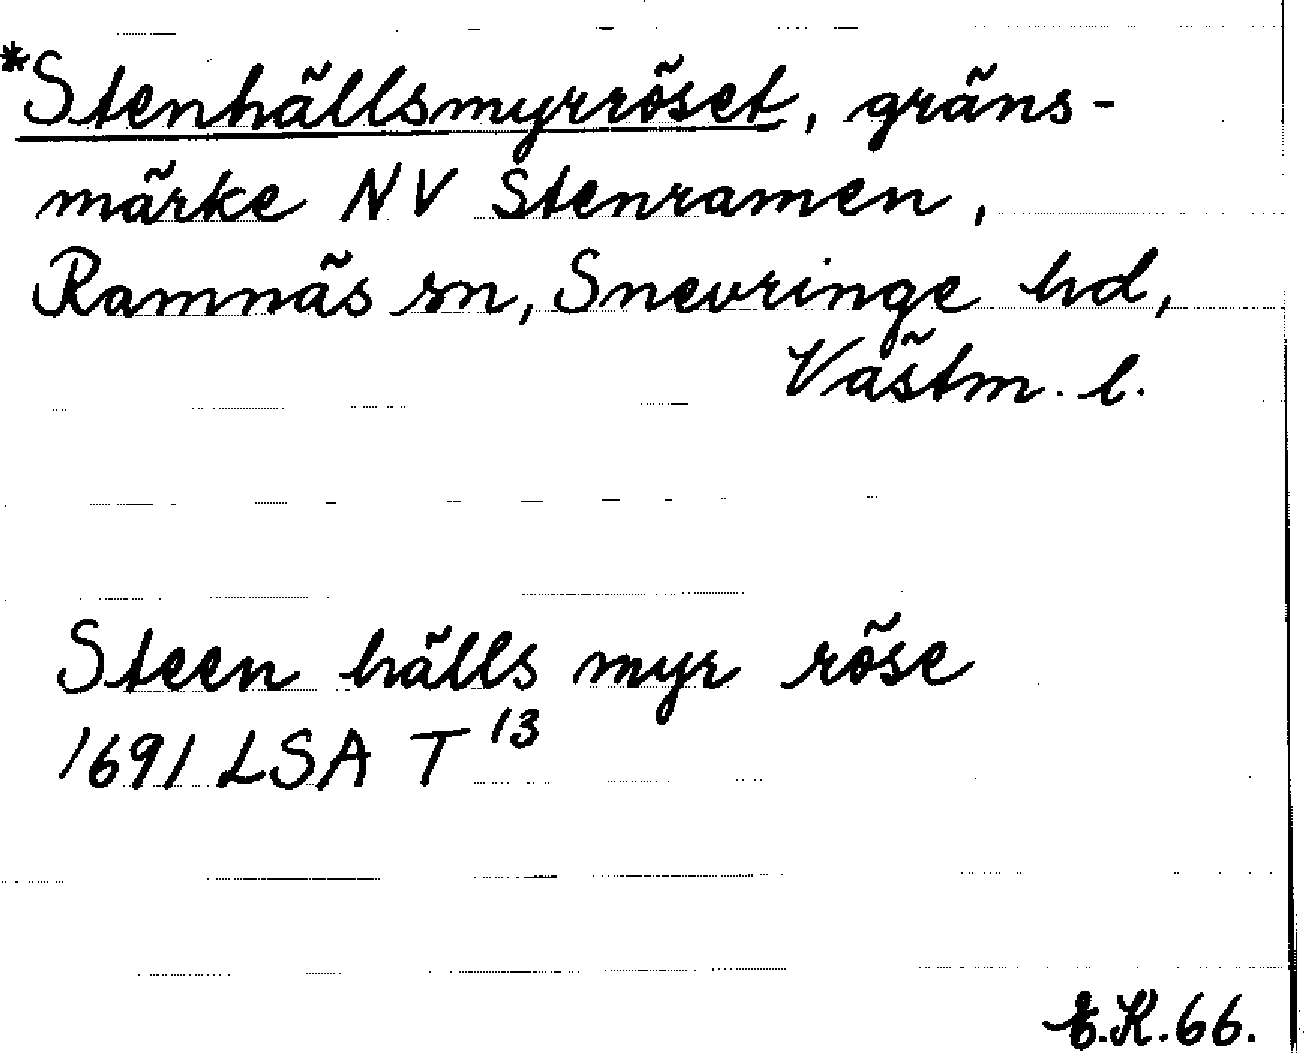 *Stenhällsmyrröset, gräns-
märke NV Stenramen,
Ramnäs sn, Snevringe hd,
Västm. l.
Steen hälls myr röse
1691 LSA T 13
E.K.66.